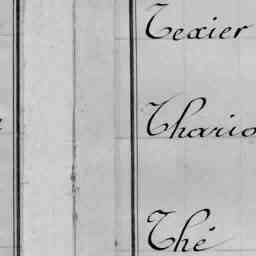 Texier
Thario
Thé